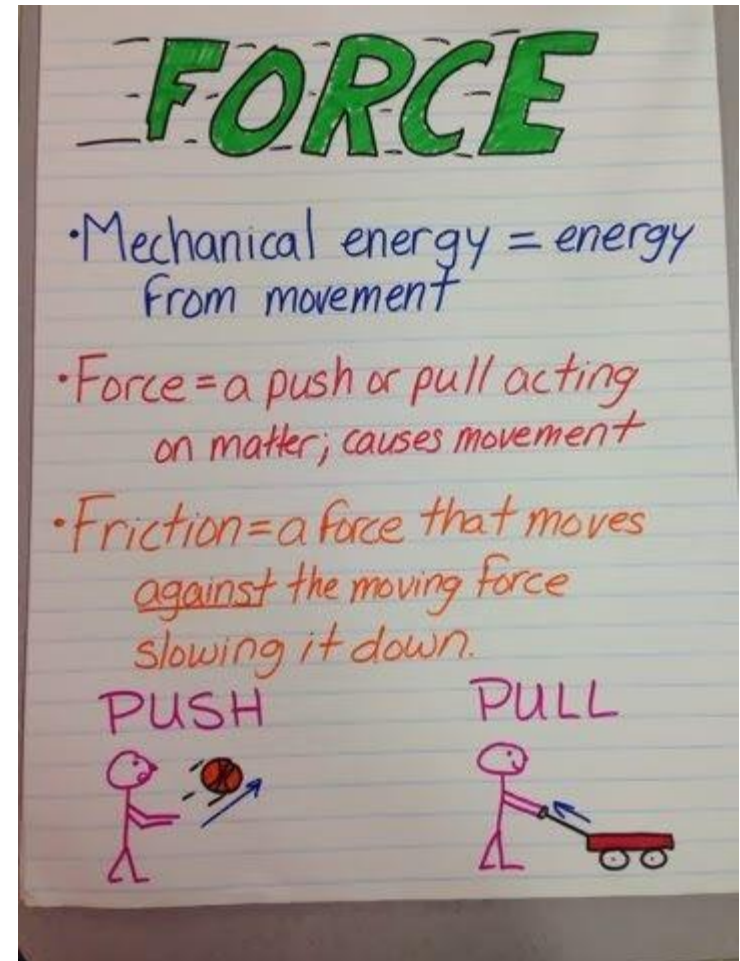 FORCE
•Mechanical energy = energy
from movement
•Force = a push or pull acting
on matter; causes movement
•Friction = a force that moves
against the moving force
slowing it down.
PUSH PULL